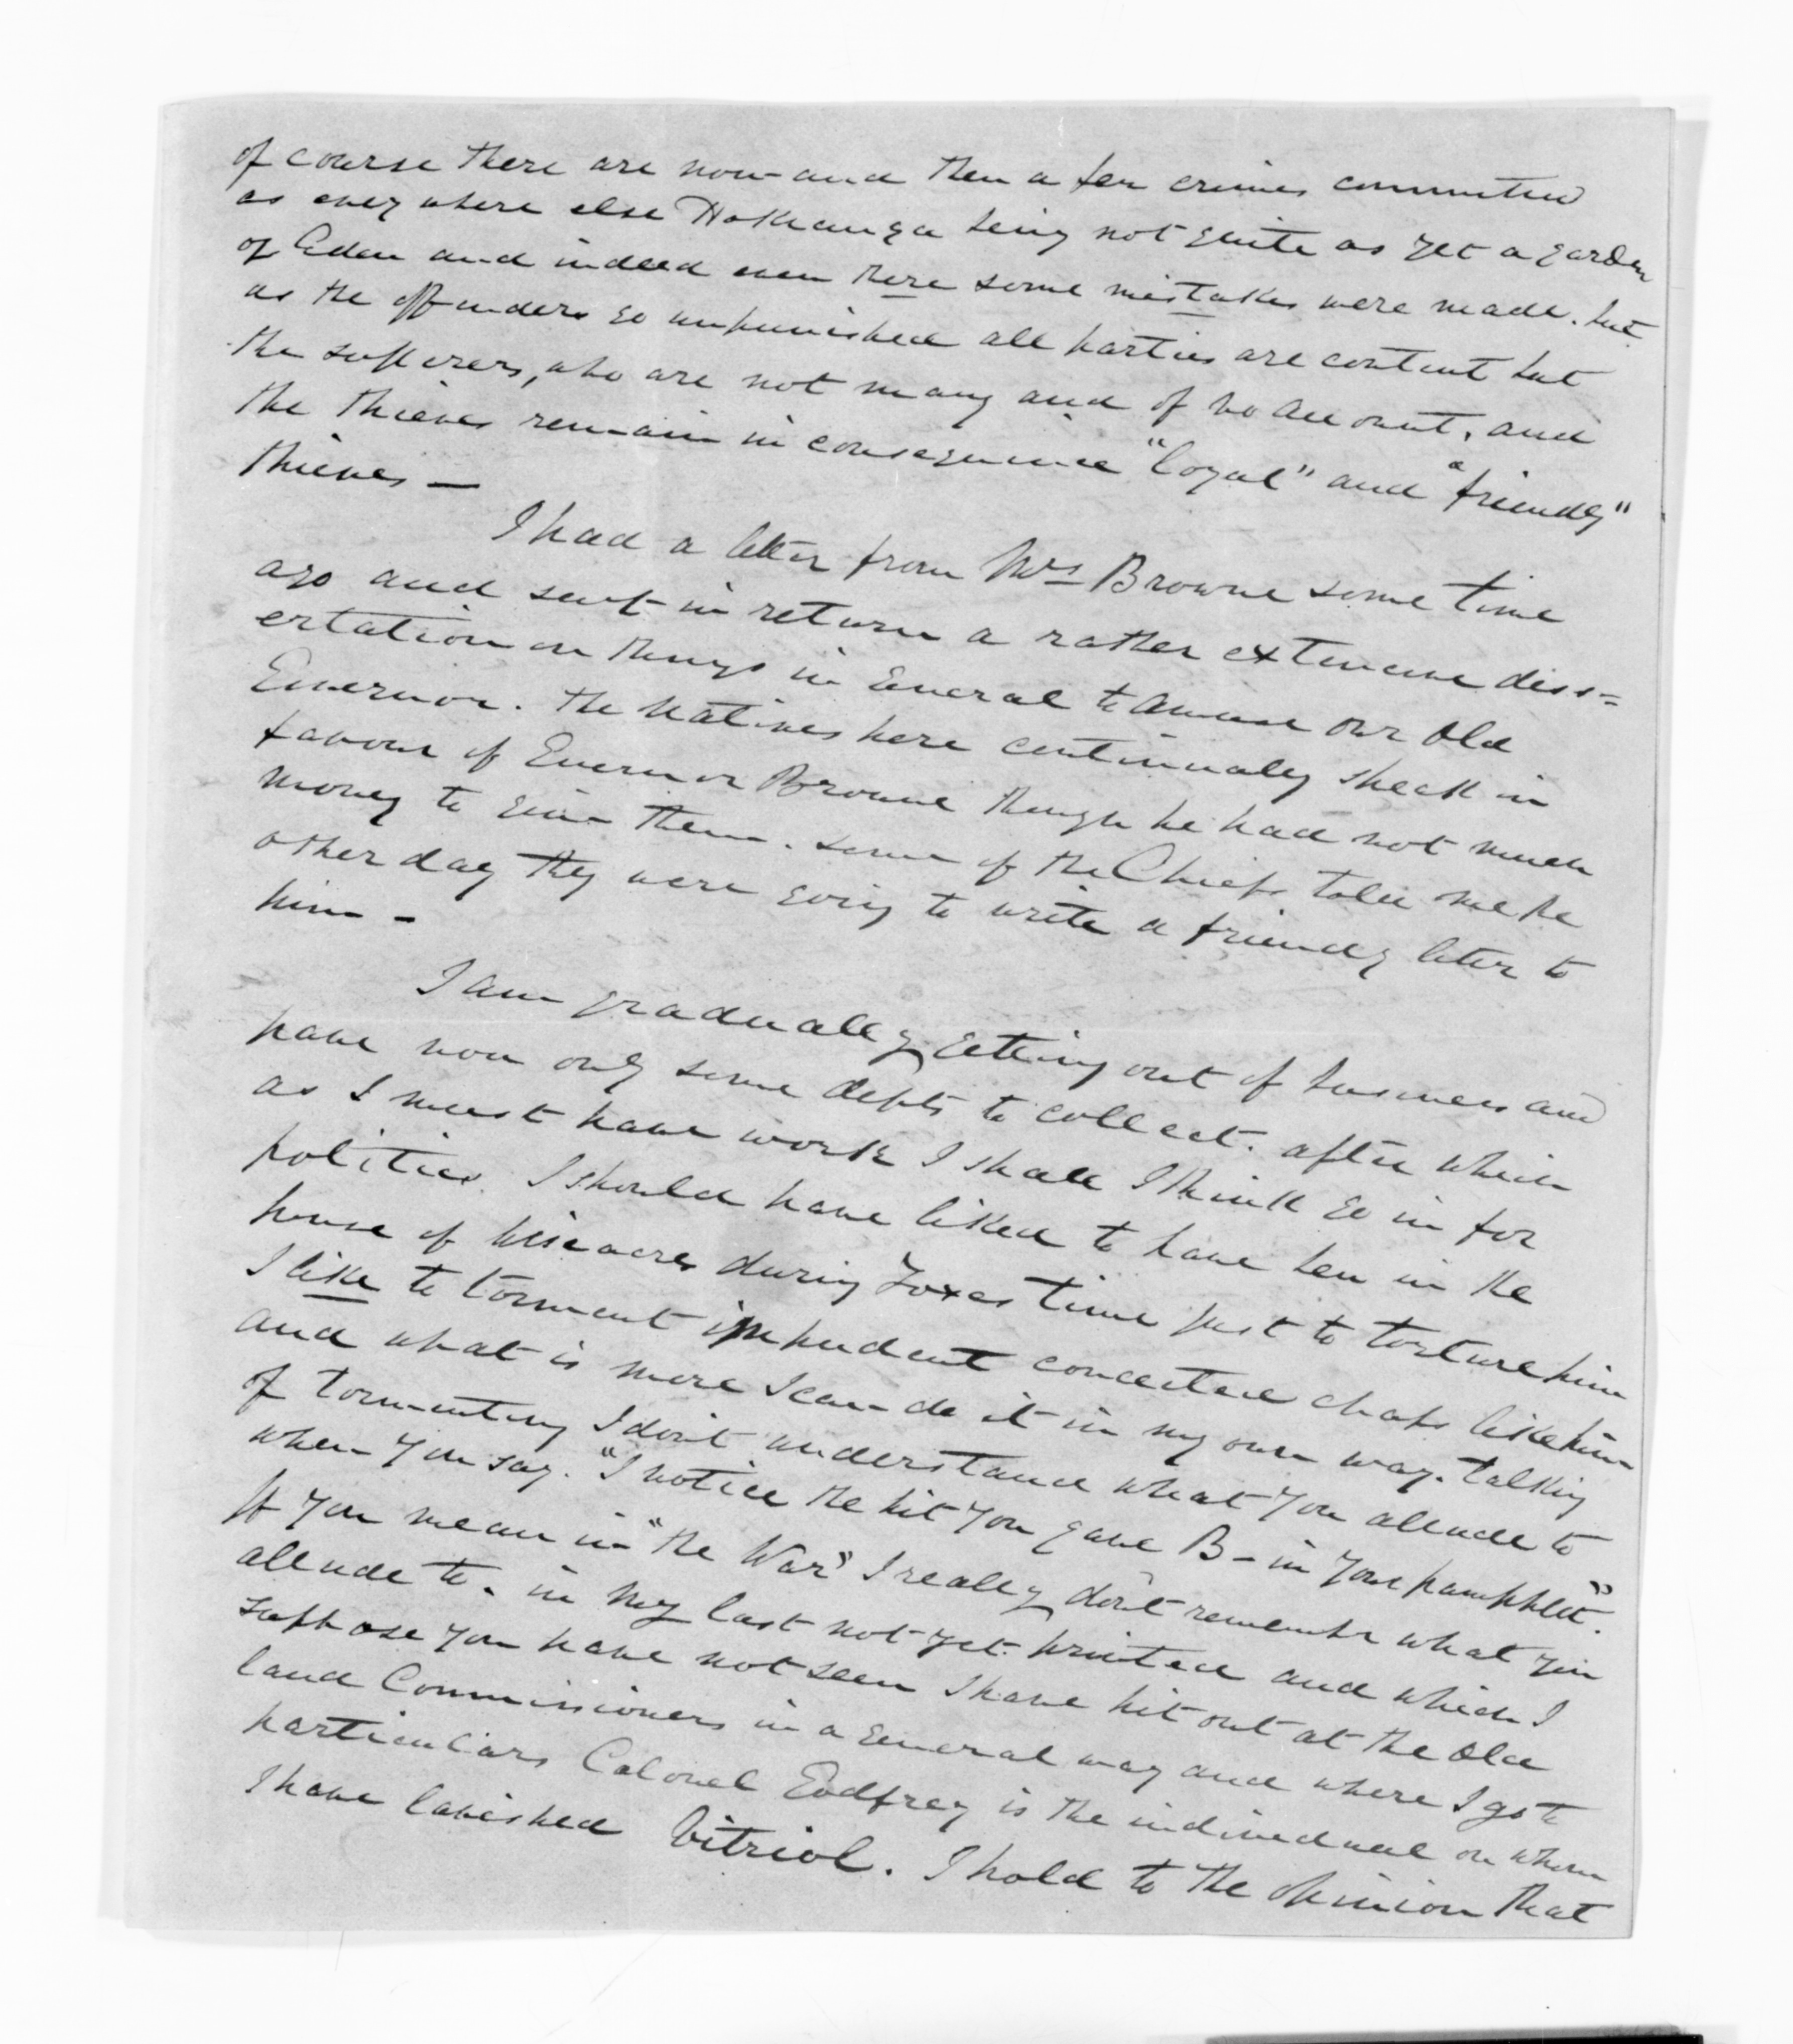 of course there are now and then a few crimes committed
as every where else Hokianga being not quite as yet a garden
of Eden and indeed even there some mistakes were made. but
as the offenders go unpunished all parties are content but
the sufferers, who are not many and of no account, and
the thieves remain in consequence "loyal" and "friendly"
thieves —
I had a letter from Mrs Browne some time
ago and sent in return a rather extensive diss=
ertation on things in General to amuse our old
Governor. the natives here continualy speak in
favour of Governor Browne though he had not much
money to give them. some of the Chiefs told me the
other day they were going to write a friendly letter to
him -
I am gradually getting out of business and
have now only some debts to collect. after which
as I must have work I shall I think go in for
politics. I should have liked to have been in the
house of wiseacres during Foxes time just to torture him
I like to torment impudent conceited chaps like him
and what is more I can do it in my own way. talking
of tormenting I dont understand what you allude to
when you say. "I notice the hit you gave B- in your pamphlet".
If you mean in "the War" I really don't remember what you
allude to. in my last not yet printed and which I
suppose you have not seen I have hit out at the old
land Commissioners in a general way and where I go to
particulars Colonel Godfrey is the individual on whom
I have lavished Vitriol. I hold to the opinion that